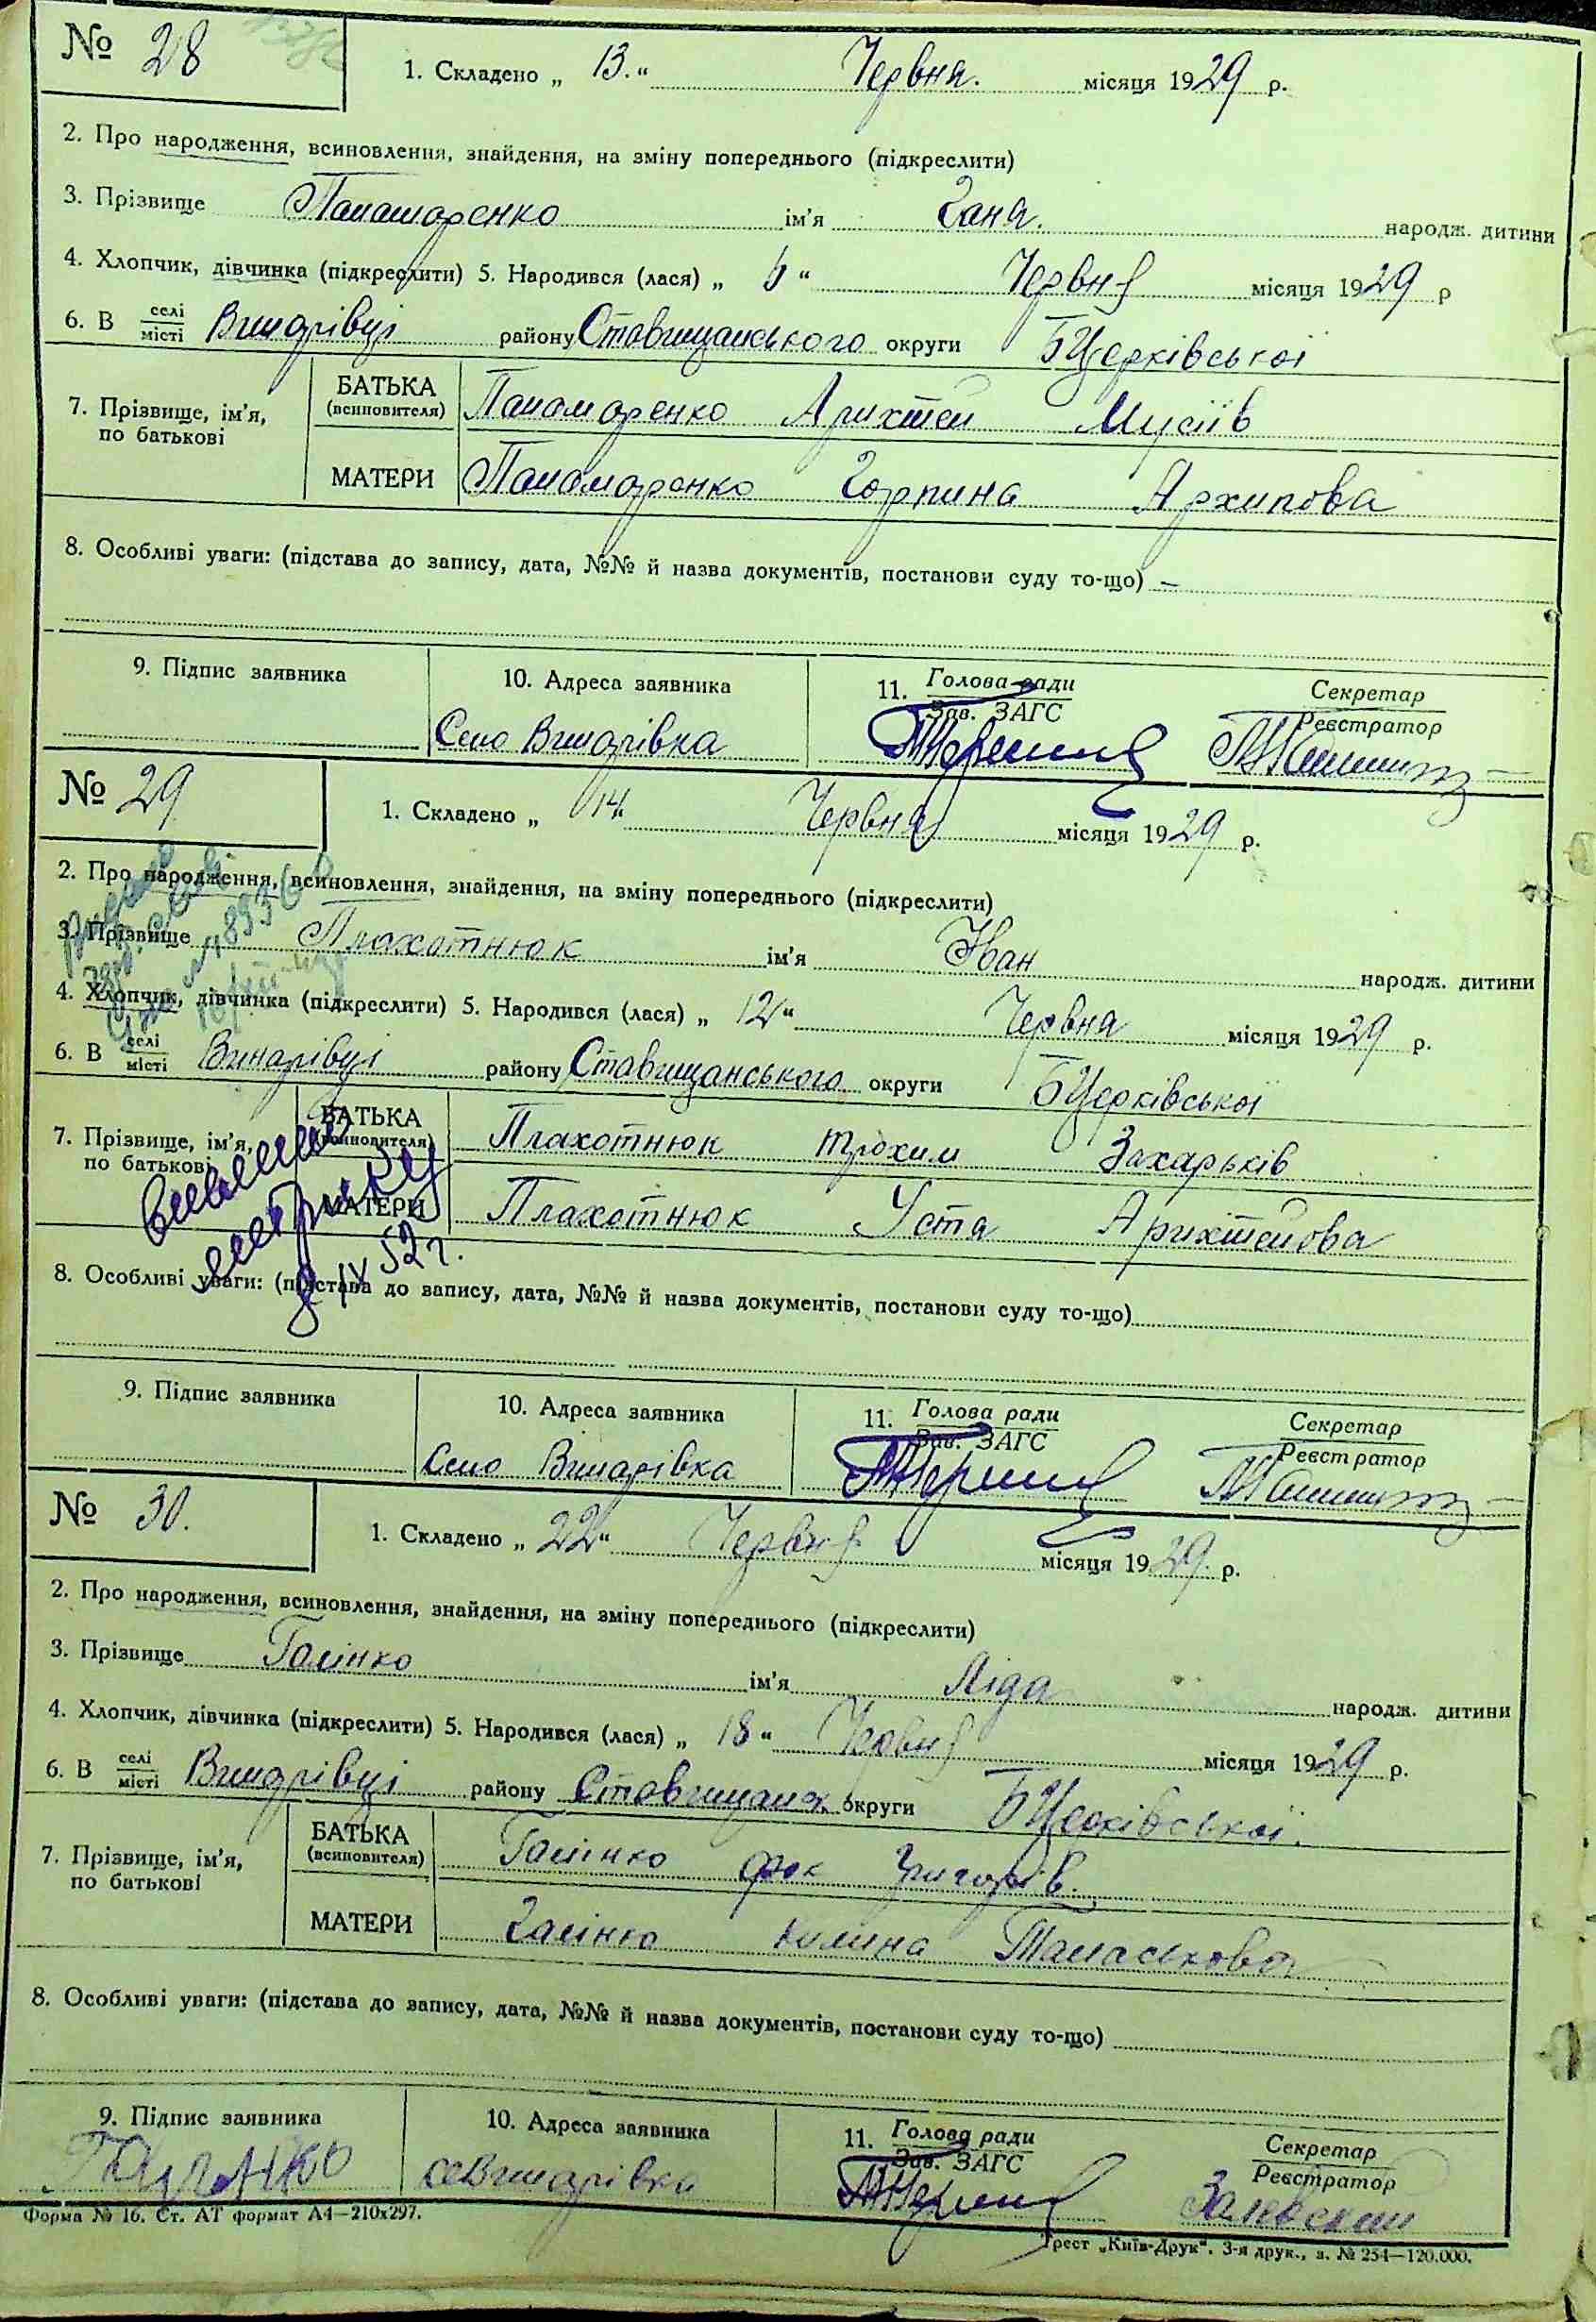 № 28
1. Складено „ 13. “ Червня. місяця 1929 р.
2. Про народження, всиновлення, знайдення, на зміну попереднього (підкреслити)
3. Прізвище Панамаренко ім'я Ганя. народж. дитини
4. Хлопчик, дівчинка (підкреслити) 5. Народився (лася) „ “ Червня місяця 1929 р
6. В селі місті Винарівці району Ставищанського округи БЦерківської
7. Прізвище, ім'я, по батькові
БАТЬКА (всиновителя) Панамаренко Арихтей Мусіїв
МАТЕРИ Панамаренко Горпина Архипова
8. Особливі уваги: (підстава до запису, дата, №№ й назва документів, постанови суду то-що) —
9. Підпис заявника 10. Адреса заявника 11. Голова ради Зав. ЗАГС Секретар Реєстратор
Село Винарівка
№ 29
1. Складено „ 14 “ Червня місяця 1929 р.
2. Про народження, всиновлення, знайдення, на зміну попереднього (підкреслити)
3. Прізвище Плахотнюк ім'я Іван народж. дитини
4. Хлопчик, дівчинка (підкреслити) 5. Народився (лася) „ 12 “ Червня місяця 1929 р.
6. В селі місті Винарівці району Ставищанського округи БЦерківської
7. Прізвище, ім'я, по батькові
БАТЬКА (всиновителя) Плахотнюк Трохим Захарьків
МАТЕРИ Плахотнюк Уста Арихтейова
метрику
8 IX 52 г.
8. Особливі уваги: (підстава до запису, дата, №№ й назва документів, постанови суду то-що)
9. Підпис заявника 10. Адреса заявника 11. Голова ради Зав. ЗАГС Секретар Реєстратор
Село Винарівка
№ 30.
1. Складено „ 22 “ Червня місяця 1929. р.
2. Про народження, всиновлення, знайдення, на зміну попереднього (підкреслити)
3. Прізвище Галінко ім'я Ліда народж. дитини
4. Хлопчик, дівчинка (підкреслити) 5. Народився (лася) „ 18 “ Червня місяця 1929 р.
6. В селі місті Винарівці району округи БЦерківської.
7. Прізвище, ім'я, по батькові
БАТЬКА (всиновителя) Галінко Фок Григорів.
МАТЕРИ Галінко Килина Танаськова
8. Особливі уваги: (підстава до запису, дата, №№ й назва документів, постанови суду то-що)
9. Підпис заявника 10. Адреса заявника 11. Голова ради Зав. ЗАГС Секретар Реєстратор
Галінко Винарівка
Форма № 16. Ст. АТ формат А4—210х297.
Трест „Київ-Друк“. 3-я друк., з. № 254—120.000.